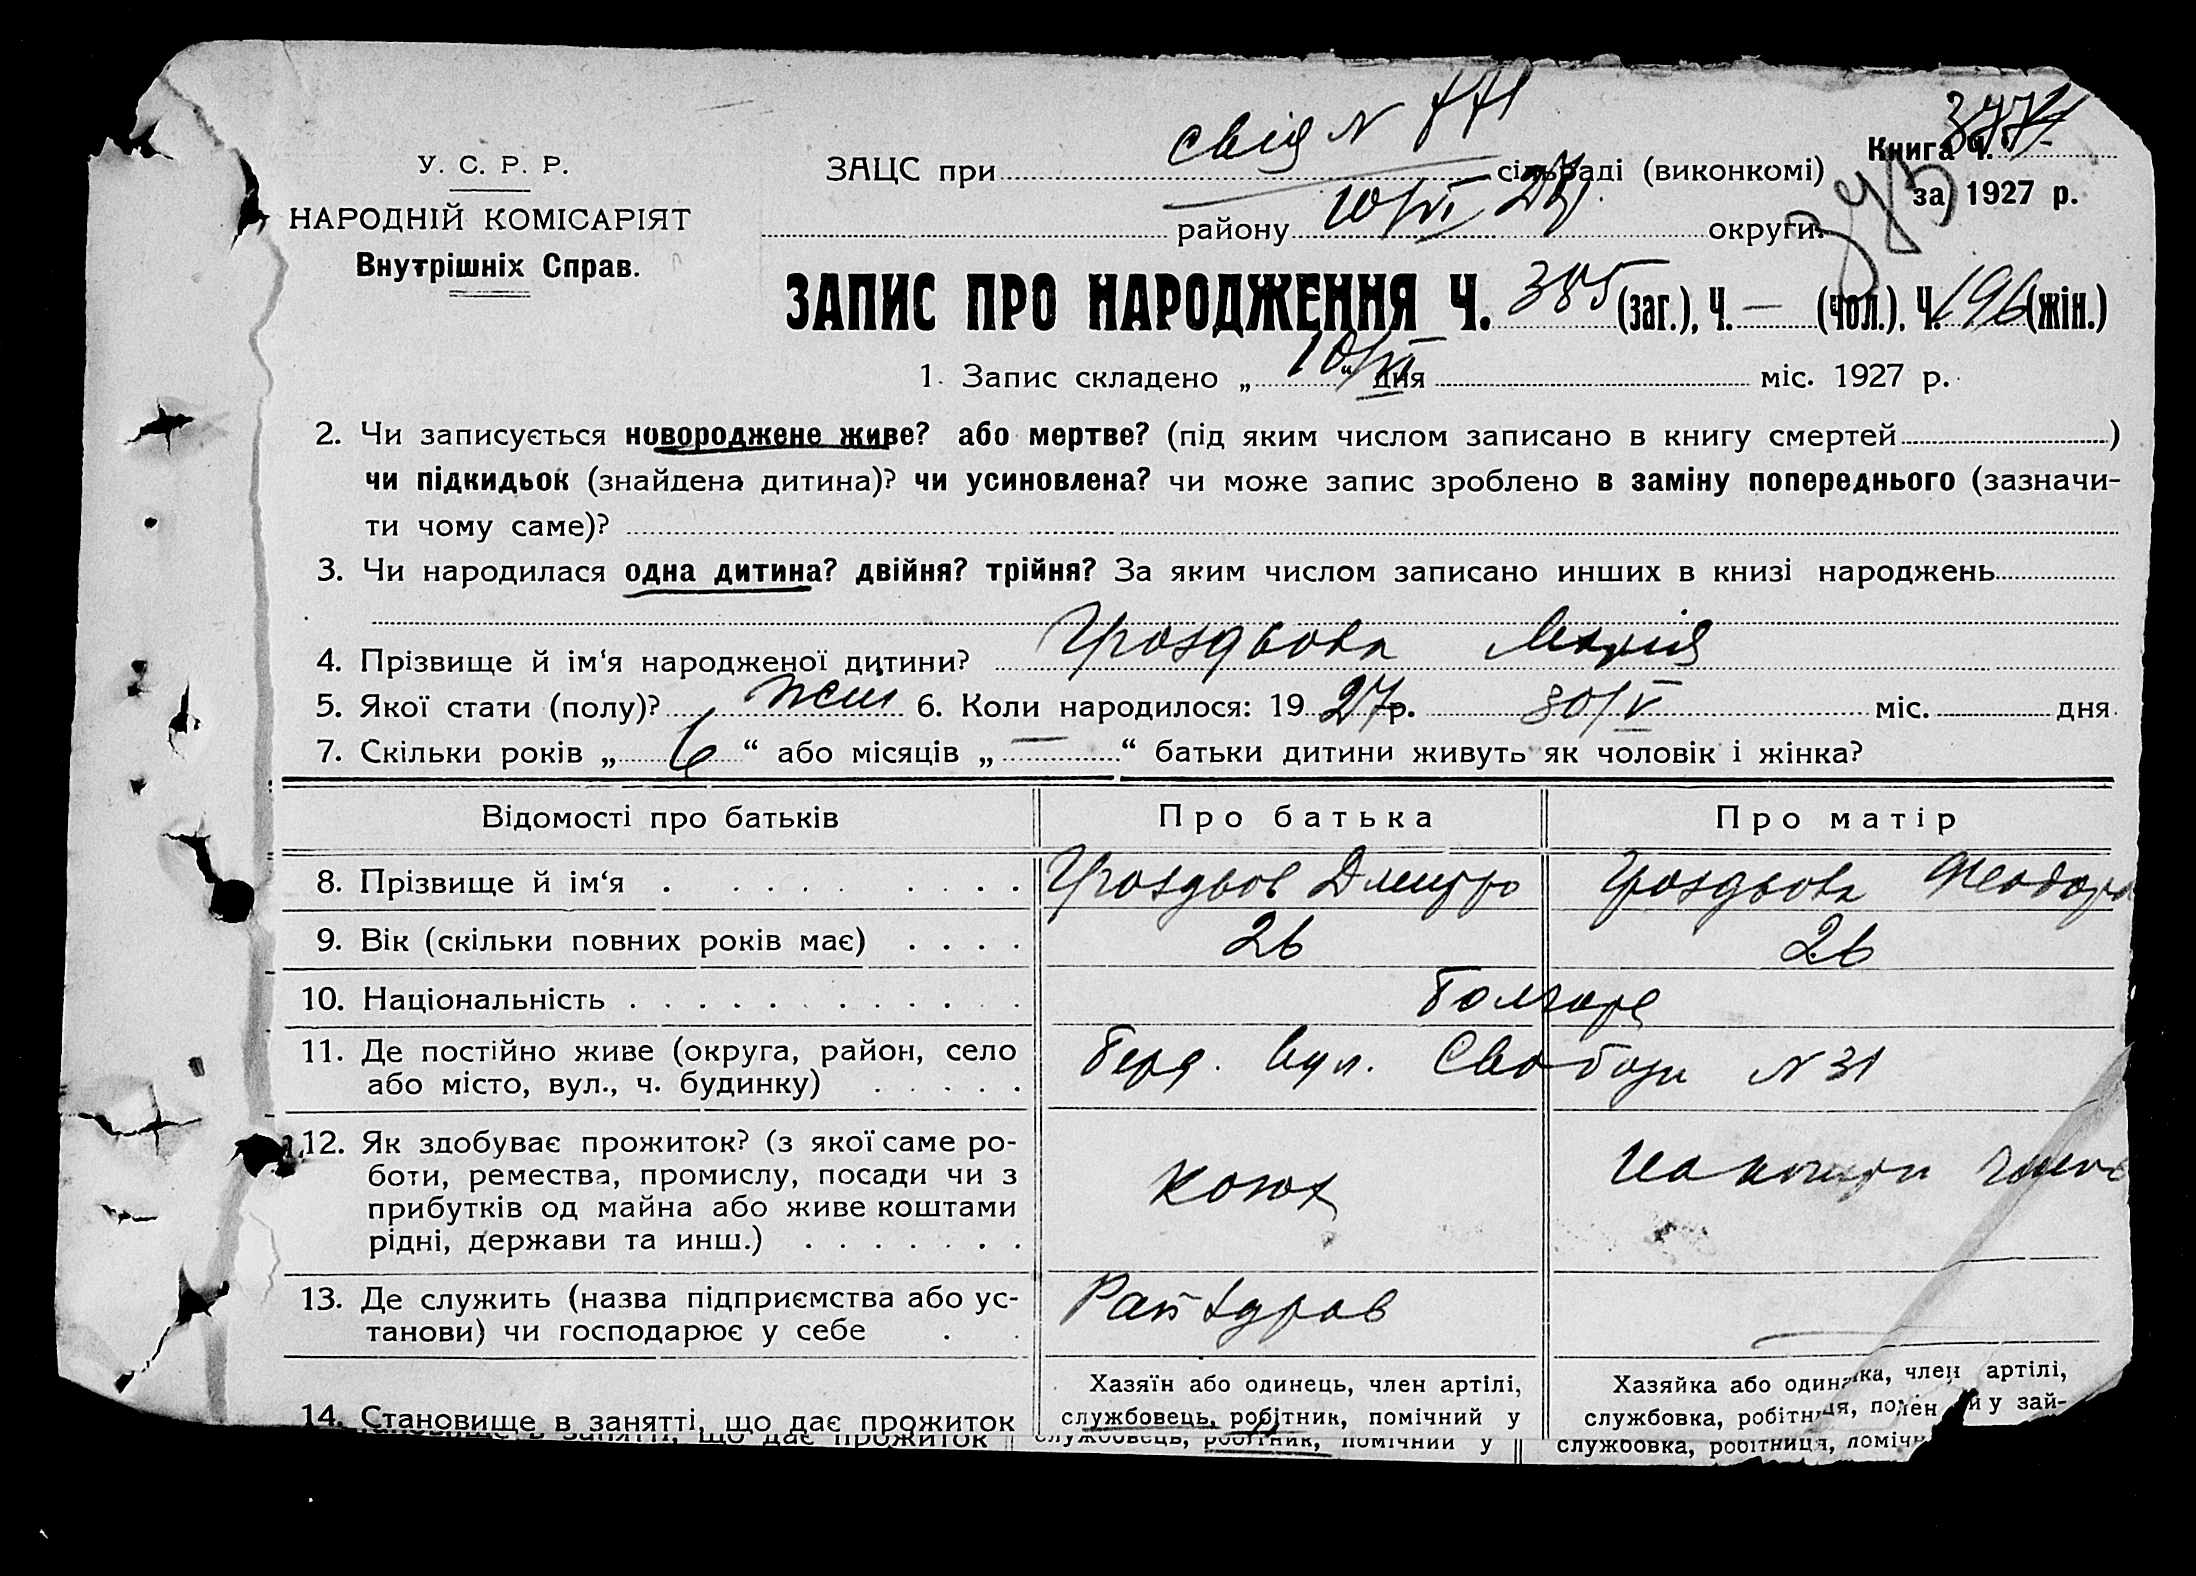 свід N 771
Книга Ч.
У. С. Р. Р.
ЗАЦС при сільраді (виконкомі)
за 1927 р.
НАРОДНІЙ КОМІСАРІЯТ
району 10/VI 27. округи.
Внутрішніх Справ.
ЗАПИС ПРО НАРОДЖЕННЯ Ч. 385 (заг.), Ч. — (чол.), Ч. 196 (жін.)
1. Запис складено „ 10/VI “ дня міс. 1927 р.
2. Чи записується новороджене живе? або мертве? (під яким числом записано в книгу смертей )
чи підкидьок (знайдена дитина)? чи усиновлена? чи може запис зроблено в заміну попереднього (зазначи-
ти чому саме)?
3. Чи народилася одна дитина? двійня? трійня? За яким числом записано инших в книзі народжень
4. Прізвище й ім‘я народженої дитини? Гроздьова Марія
5. Якої стати (полу)? жін 6. Коли народилося: 19 27 р. 30/V міс. дня
7. Скільки років „ 6 “ або місяців „ — “ батьки дитини живуть як чоловік і жінка?
Відомості про батьків Про батька Про матір
8. Прізвище й ім‘я Гроздьов Дмитро Гроздьова Феодора
9. Вік (скільки повних років має) 26 26
10. Національність Болгаре
11. Де постійно живе (округа, район, село
або місто, вул., ч. будинку) Берд. вул. Свободи N 31
12. Як здобуває прожиток? (з якої саме ро-
боти, ремества, промислу, посади чи з
прибутків од майна або живе коштами
рідні, держави та инш.) конюх на кошти
13. Де служить (назва підприємства або ус-
танови) чи господарює у себе —
Хазяїн або одинець, член артілі,
службовець, робітник, помічний у
Хазяйка або один ка, член артілі,
службовка, робітн ця, й у зай-
14. Становище в занятті, що дає прожиток
службовець, робітник, помічний у
службовка, робітниця,